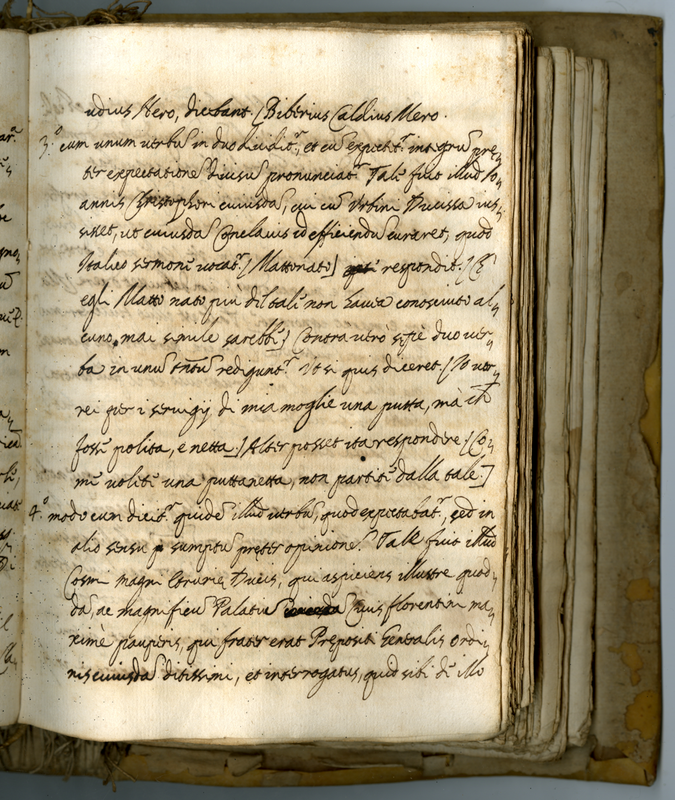 udius Nero, dicebant. [Biberius Caldius Mero.
3.° cum unum verbū in duo dividit.r, et cū expectet.r integrū pre,
ter expectationē divisū pronunciat.r Talē fuit illud Io,
annis Christophori cuiusdā, qui cū Urbini Ducissa ius,
sisset, ut cuiusdā Conclavis id efficiendū curaret, quod
Italico sermonē vocat.r [Mattonato] respondit. [Sē
egli Matto nato più di tali non havea conosciuto al,
cuno, mai simile sarebbē] Contra verò sepè duo ver,
ba in unū tn̄tū redigunt.r Ut si quis diceret. [Io vor,
rei per i servigij di mia moglie una putta, mà ch̄
fossē polita, e netta.] Alter posset ita respondere. [Co,
mē volētē una puttanetta, non partitē dalla tale.]
4.° modo cum dicit.r quidē illud verbū, quod expectabat.r, sed in
alio sensu sumptū preter opinionē. Talē fuit illud
Cosmi magni Etrurie Ducis, qui aspiciens illustre quod,
dā, ac magnificū Palatiū Civis florentini ma,
ximè pauperis, qui frater erat Prepositi Generalis ordi,
nis cuiusdā ditissimi, et interrogatus, quid sibi dē illo